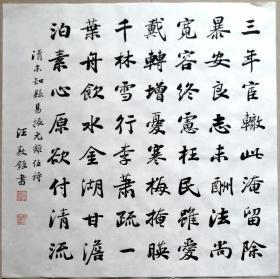 三年宦轍此淹留除
暴安良志未酬法尚
寬容終慮枉民雖愛
戴轉增憂寒梅掩映
千林雪行李蕭疏一
葉舟飲水金湖甘澹
泊素心原欲付清流
清末知縣易振元離任詩
汪 銘書